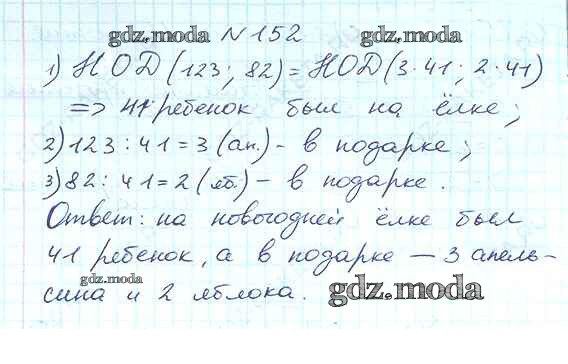 gdz.moda N152 gdz.moda
1) НОД (123; 82) = НОД (3·41; 2·41)
=> 41 ребенок был на ёлке;
2) 123 : 41 = 3 (ап.) - в подарке;
3) 82 : 41 = 2 (яб.) - в подарке.
Ответ: на новогодней ёлке был
41 ребенок, а в подарке — 3 апель-
сина и 2 яблока. gdz.moda
gdz.moda